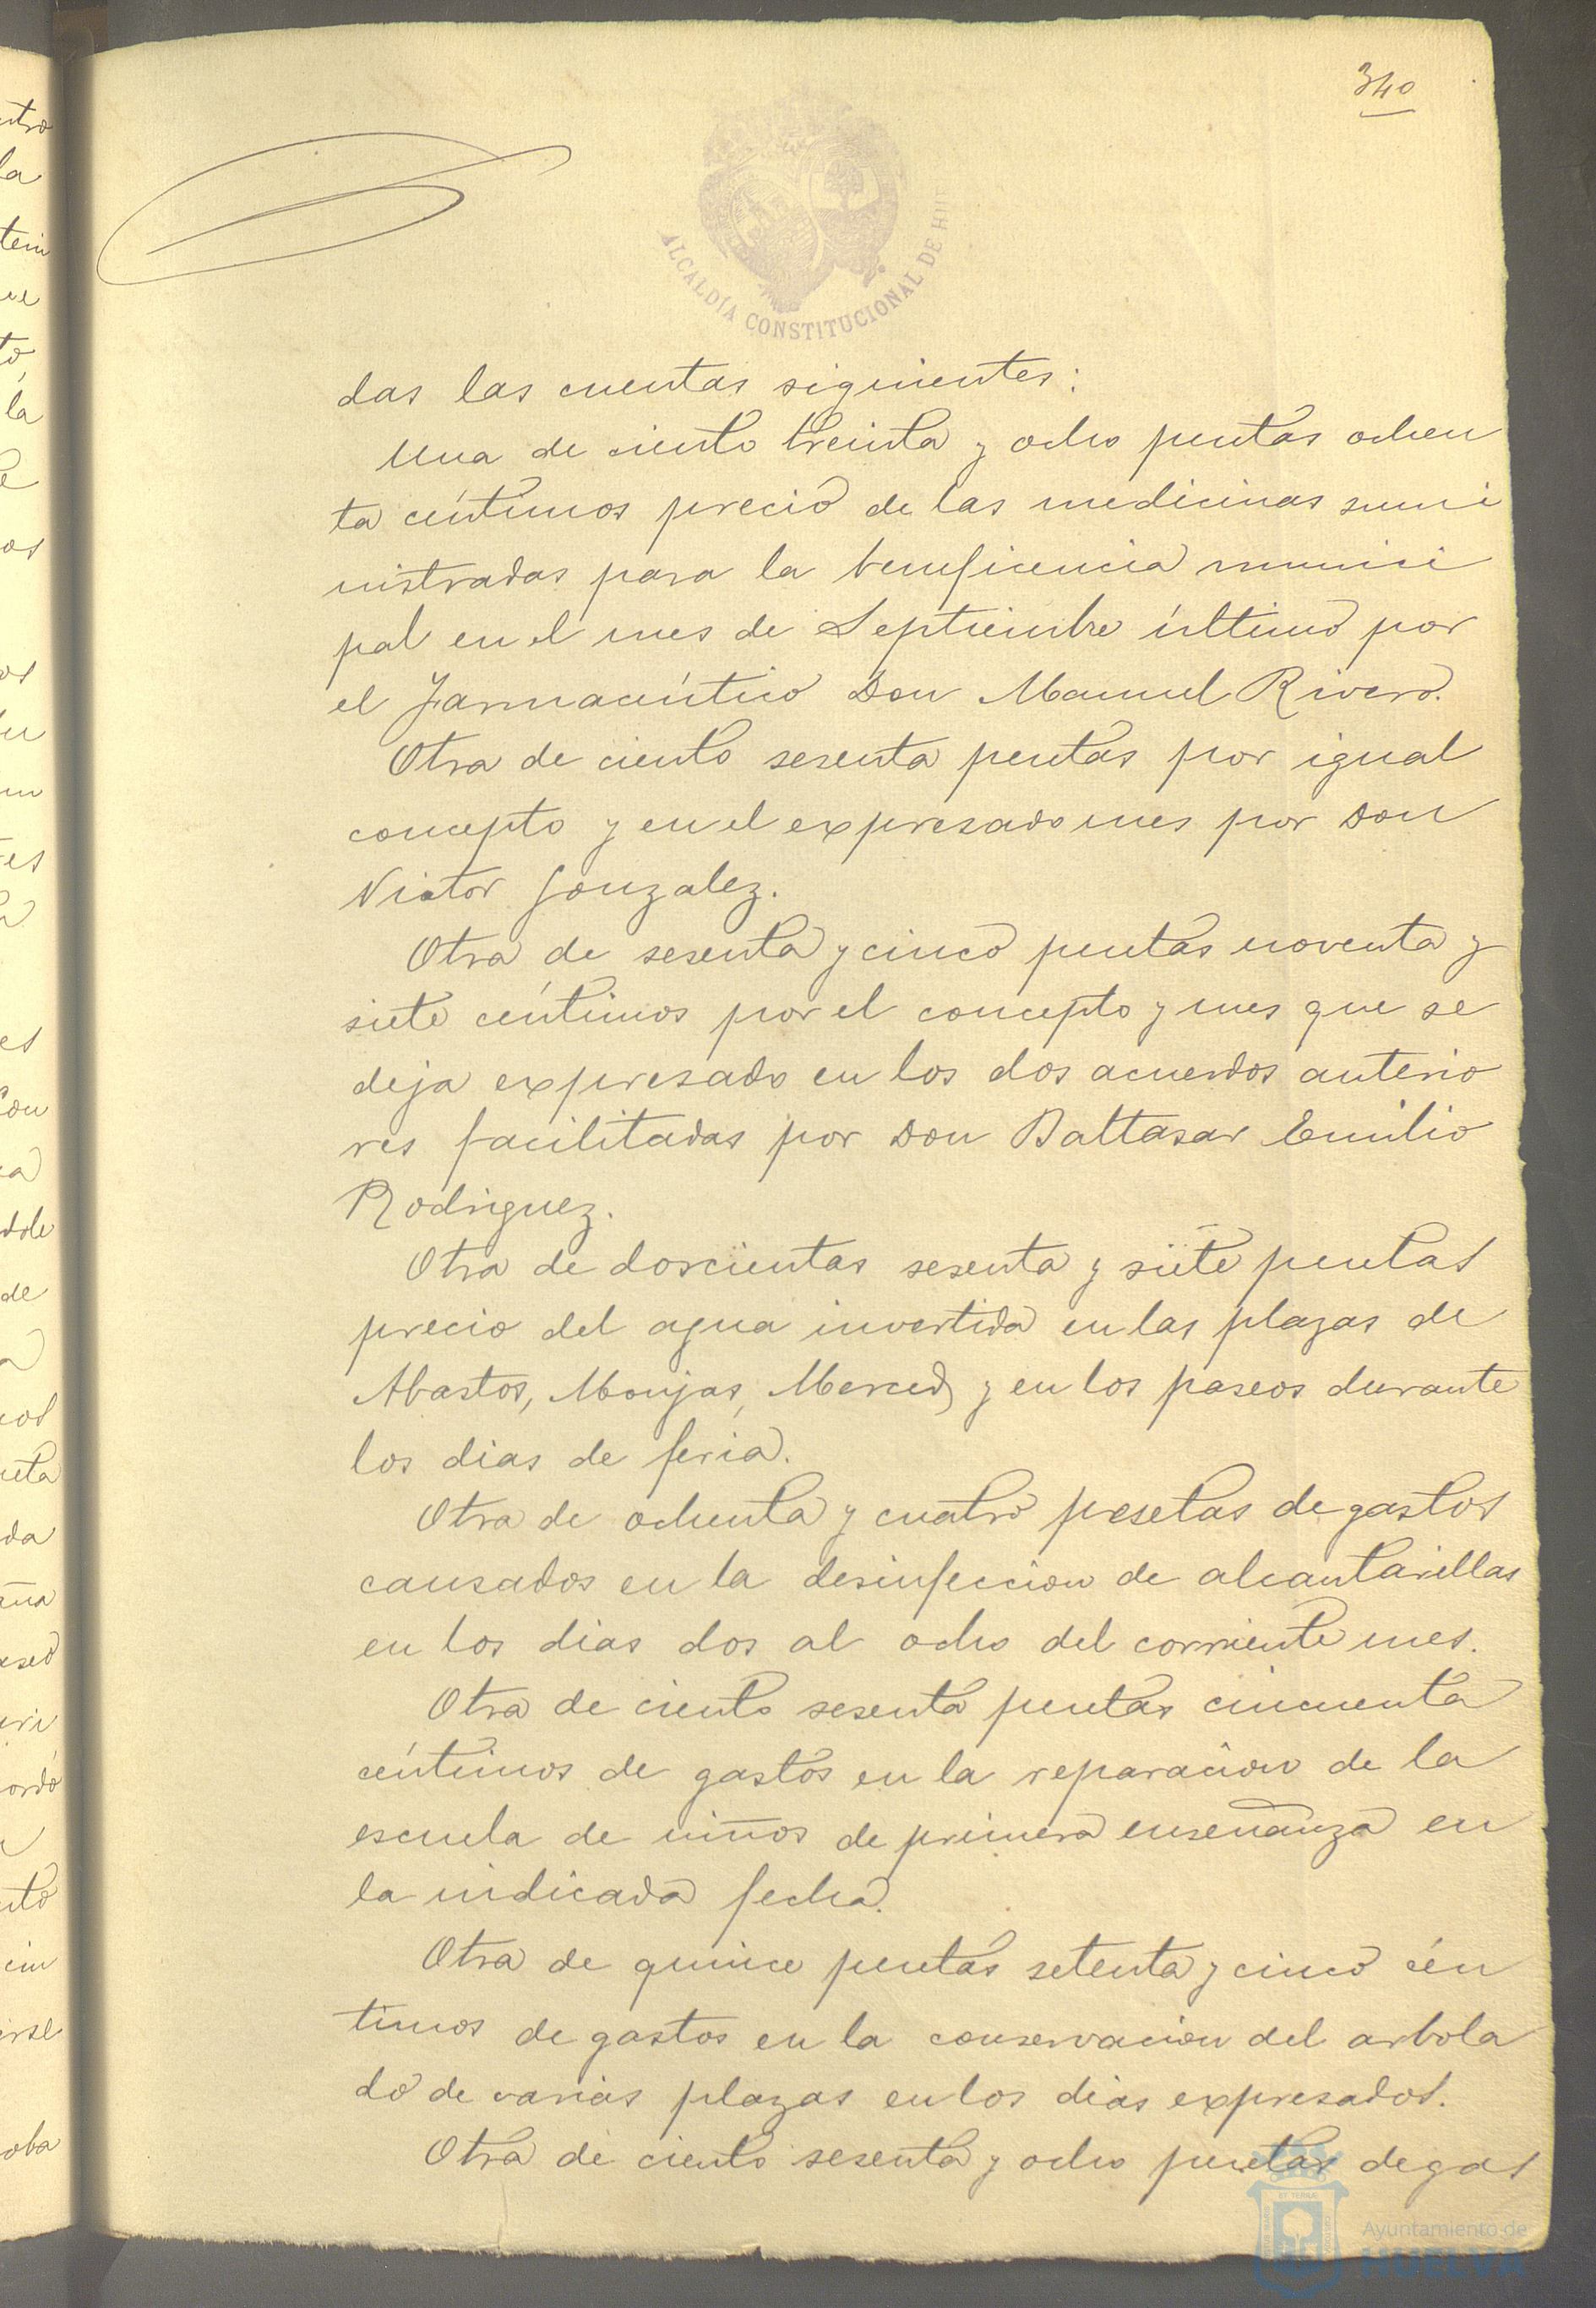 340
ALCALDÍA CONSTITUCIONAL DE HUE
das las cuentas siguientes:
Una de ciento treinta y ocho pesetas ochen
ta céntimos precio de las medicinas sumi
nistradas para la beneficencia munici
pal en el mes de Septiembre último por
el Farmacéutico Don Manuel Rivero.
Otra de ciento sesenta pesetas por igual
concepto y en el expresado mes por Don
Victor Gonzalez.
Otra de sesenta y cinco pesetas noventa y
siete céntimos por el concepto y mes que se
deja expresado en los dos acuerdos anterio
res facilitadas por Don Baltasar Emilio
Rodriguez.
Otra de doscientas sesenta y siete pesetas
precio del agua invertida en las plazas de
Abastos, Monjas, Merced y en los paseos durante
los dias de feria.
Otra de ochenta y cuatro pesetas de gastos
causados en la desinfeccion de alcantarillas
en los dias dos al ocho del corriente mes.
Otra de ciento sesenta pesetas cincuenta
céntimos de gastos en la reparacion de la
escuela de niños de primera enseñanza en
la indicada fecha.
Otra de quince pesetas setenta y cinco cén
timos de gastos en la conservacion del arbola
do de varias plazas en los dias expresados.
Otra de ciento sesenta y ocho pesetas de gas
Ayuntamiento de
HUELVA